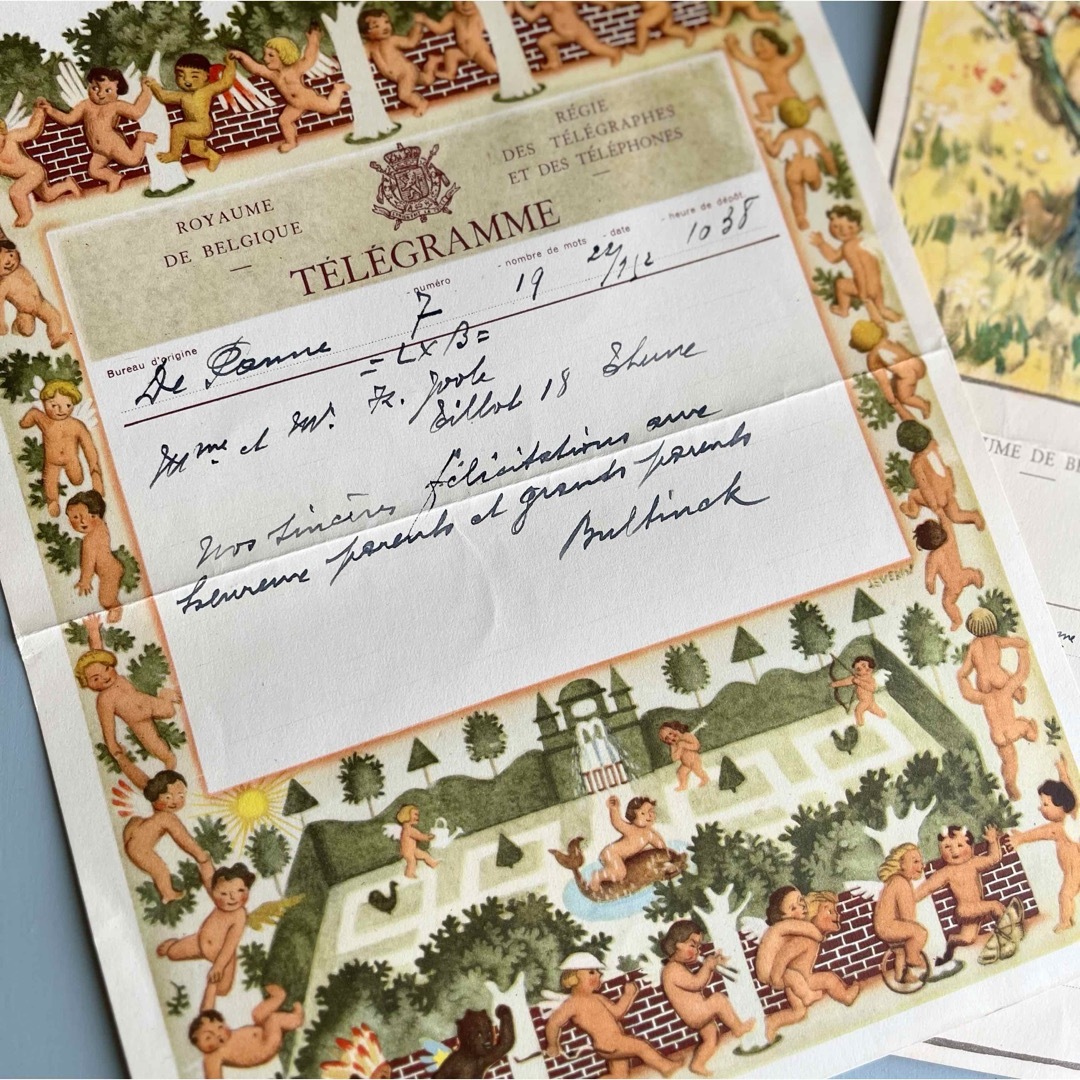 ROYAUME
DE BELGIQUE
RÉGIE
DES TÉLÉGRAPHES
ET DES TÉLÉPHONES
TÉLÉGRAMME
Bureau d'origine - numéro - nombre de mots - date - heure de dépôt
De Panne 7 19 1038
= LX B =
Mme et Mr. Fr.
18
Nos sincères félicitations aux
heureux parents et grands parents
Bultinck
J.SEVERIN